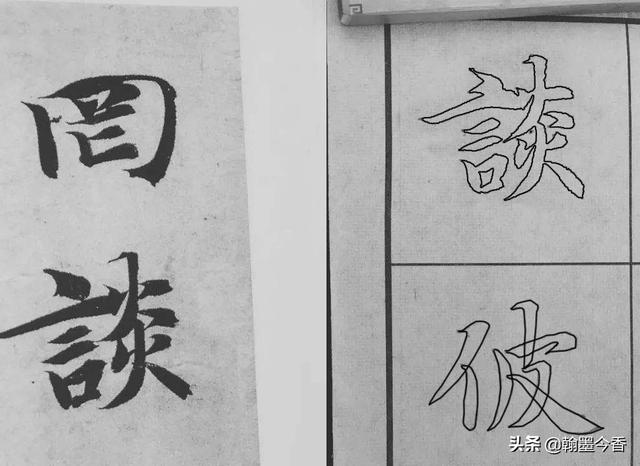 罔
談
談
彼
头条 @翰墨今香